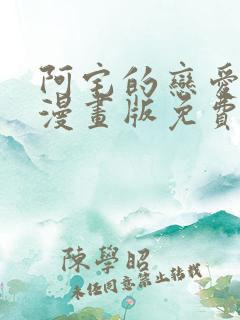 阿宅的戀愛
漫畫版免費
陳學昭
未任同意禁止转载